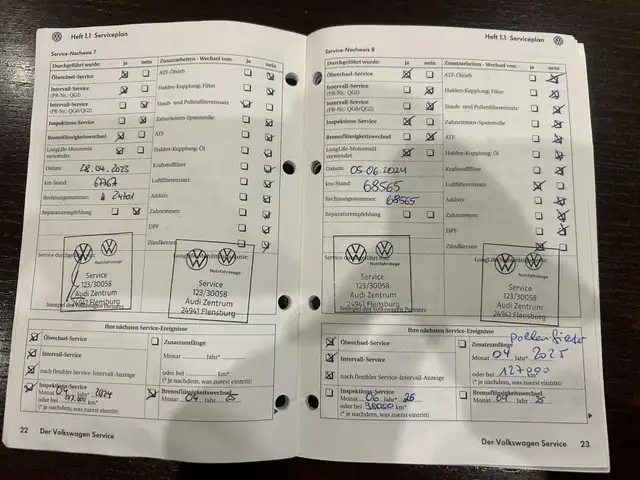 Heft 1.1 Serviceplan
Service-Nachweis 7
Durchgeführt wurde: ja nein
Zusatzarbeiten - Wechsel von: ja nein
Ölwechsel-Service
ATF-Ölsieb
Intervall-Service
(PR-Nr.: QGI)
Haldex-Kupplung: Filter
Intervall-Service
(PR-Nr.: QG0/QG2)
Staub- und Pollenfiltereinsatz
Inspektions-Service
Zahnriemen-Spannrolle
Bremsflüssigkeitswechsel
ATF
LongLife-Motorenöl
verwendet
Haldex-Kupplung: Öl
Datum: 28.04.2023
Kraftstofffilter
km-Stand: 67767
Luftfiltereinsatz
Rechnungsnummer:
Additiv
Reparaturempfehlung
Zahnriemen
DPF
Zündkerzen
Service durchgeführt
Nutzfahrzeuge
Service
123/30058
Audi Zentrum
24941 Flensburg
Stempel des Volkswagen Partners
Nutzfahrzeuge
Service
123/30058
Audi Zentrum
24941 Flensburg
Ihre nächsten Service-Ereignisse
Ölwechsel-Service
Zusatzumfänge
Intervall-Service
Monat Jahr*
nach flexibler Service-Intervall-Anzeige
oder bei km*
(* je nachdem, was zuerst eintritt)
Inspektions-Service
Monat 04 Jahr* 2024
oder bei km*
(* je nachdem, was zuerst eintritt)
Bremsflüssigkeitswechsel
Monat 04 Jahr 25
22 Der Volkswagen Service
Heft 1.1 Serviceplan
Service-Nachweis 8
Durchgeführt wurde: ja nein
Zusatzarbeiten - Wechsel von: ja nein
Ölwechsel-Service
ATF-Ölsieb
Intervall-Service
(PR-Nr.: QGI)
Haldex-Kupplung: Filter
Intervall-Service
(PR-Nr.: QG0/QG2)
Staub- und Pollenfiltereinsatz
Inspektions-Service
Zahnriemen-Spannrolle
Bremsflüssigkeitswechsel
ATF
LongLife-Motorenöl
verwendet
Haldex-Kupplung: Öl
Datum: 05.06.2024
Kraftstofffilter
km-Stand: 68565
Luftfiltereinsatz
Rechnungsnummer: 68565
Additiv
Reparaturempfehlung
Zahnriemen
DPF
Zündkerzen
Nutzfahrzeuge
Service
123/30058
Audi Zentrum
24941 Flensburg
Stempel des Volkswagen Partners
Nutzfahrzeuge
Service
123/30058
Audi Zentrum
24941 Flensburg
Ihre nächsten Service-Ereignisse
Ölwechsel-Service
Zusatzumfänge
Intervall-Service
Monat 04 Jahr* 2025
nach flexibler Service-Intervall-Anzeige
oder bei 127000 km*
(* je nachdem, was zuerst eintritt)
Inspektions-Service
Monat 06 Jahr* 25
oder bei 98000 km*
(* je nachdem, was zuerst eintritt)
Bremsflüssigkeitswechsel
Monat 04 Jahr 25
Der Volkswagen Service 23